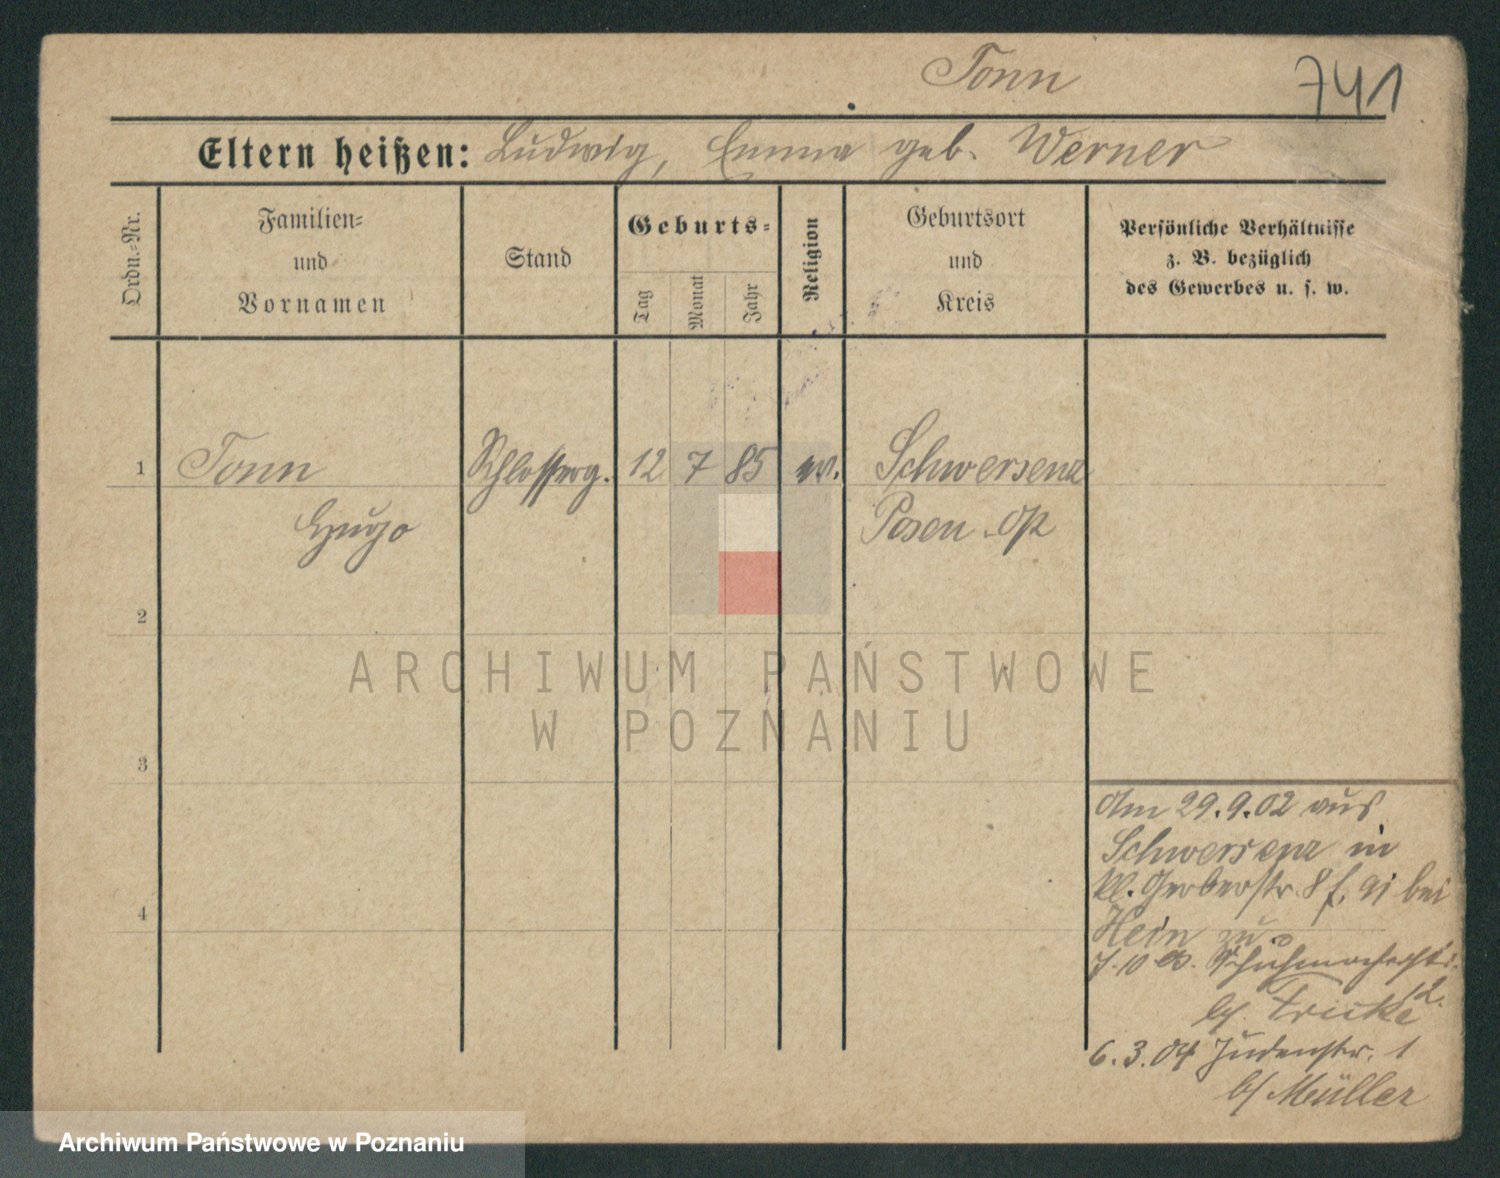 Tonn
741
Eltern heißen: Ludwig, Emma geb. Werner
Ordn.-Nr.
Familien-
und
Vornamen
Stand
Geburts-
Tag
Monat
Jahr
Religion
Geburtsort
und
Kreis
Persönliche Verhältnisse
z. B. bezüglich
des Gewerbes u. s. w.
1 Tonn Schlosserg. 12 7 85 ev. Schwersenz
Hugo Posen Op
2
3
4
Am 29.9.02 aus
Schwersenz in
kl. Gerberstr. 8 bei
Hein zu
7.10
6.3.04 Judenstr. 1
b/ Müller
ARCHIWUM PAŃSTWOWE
W POZNANIU
Archiwum Państwowe w Poznaniu